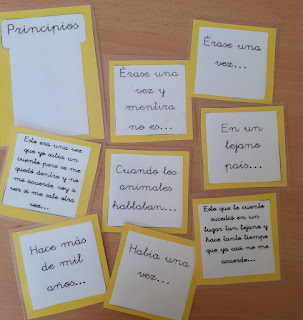 Principios
Érase una
vez...
Érase una
vez y
mentira
no es...
En un
lejano
país...
Esto era una vez
que yo sabía un
cuento pero se me
quedó dentro y no
me acuerdo voy a
ver si me sale otra
vez...
Cuando los
animales
hablaban...
Esto que te cuento
sucedió en un
lugar tan lejano y
hace tanto tiempo
que ya casi no me
acuerdo...
Hace más
de mil
años...
Había una
vez...